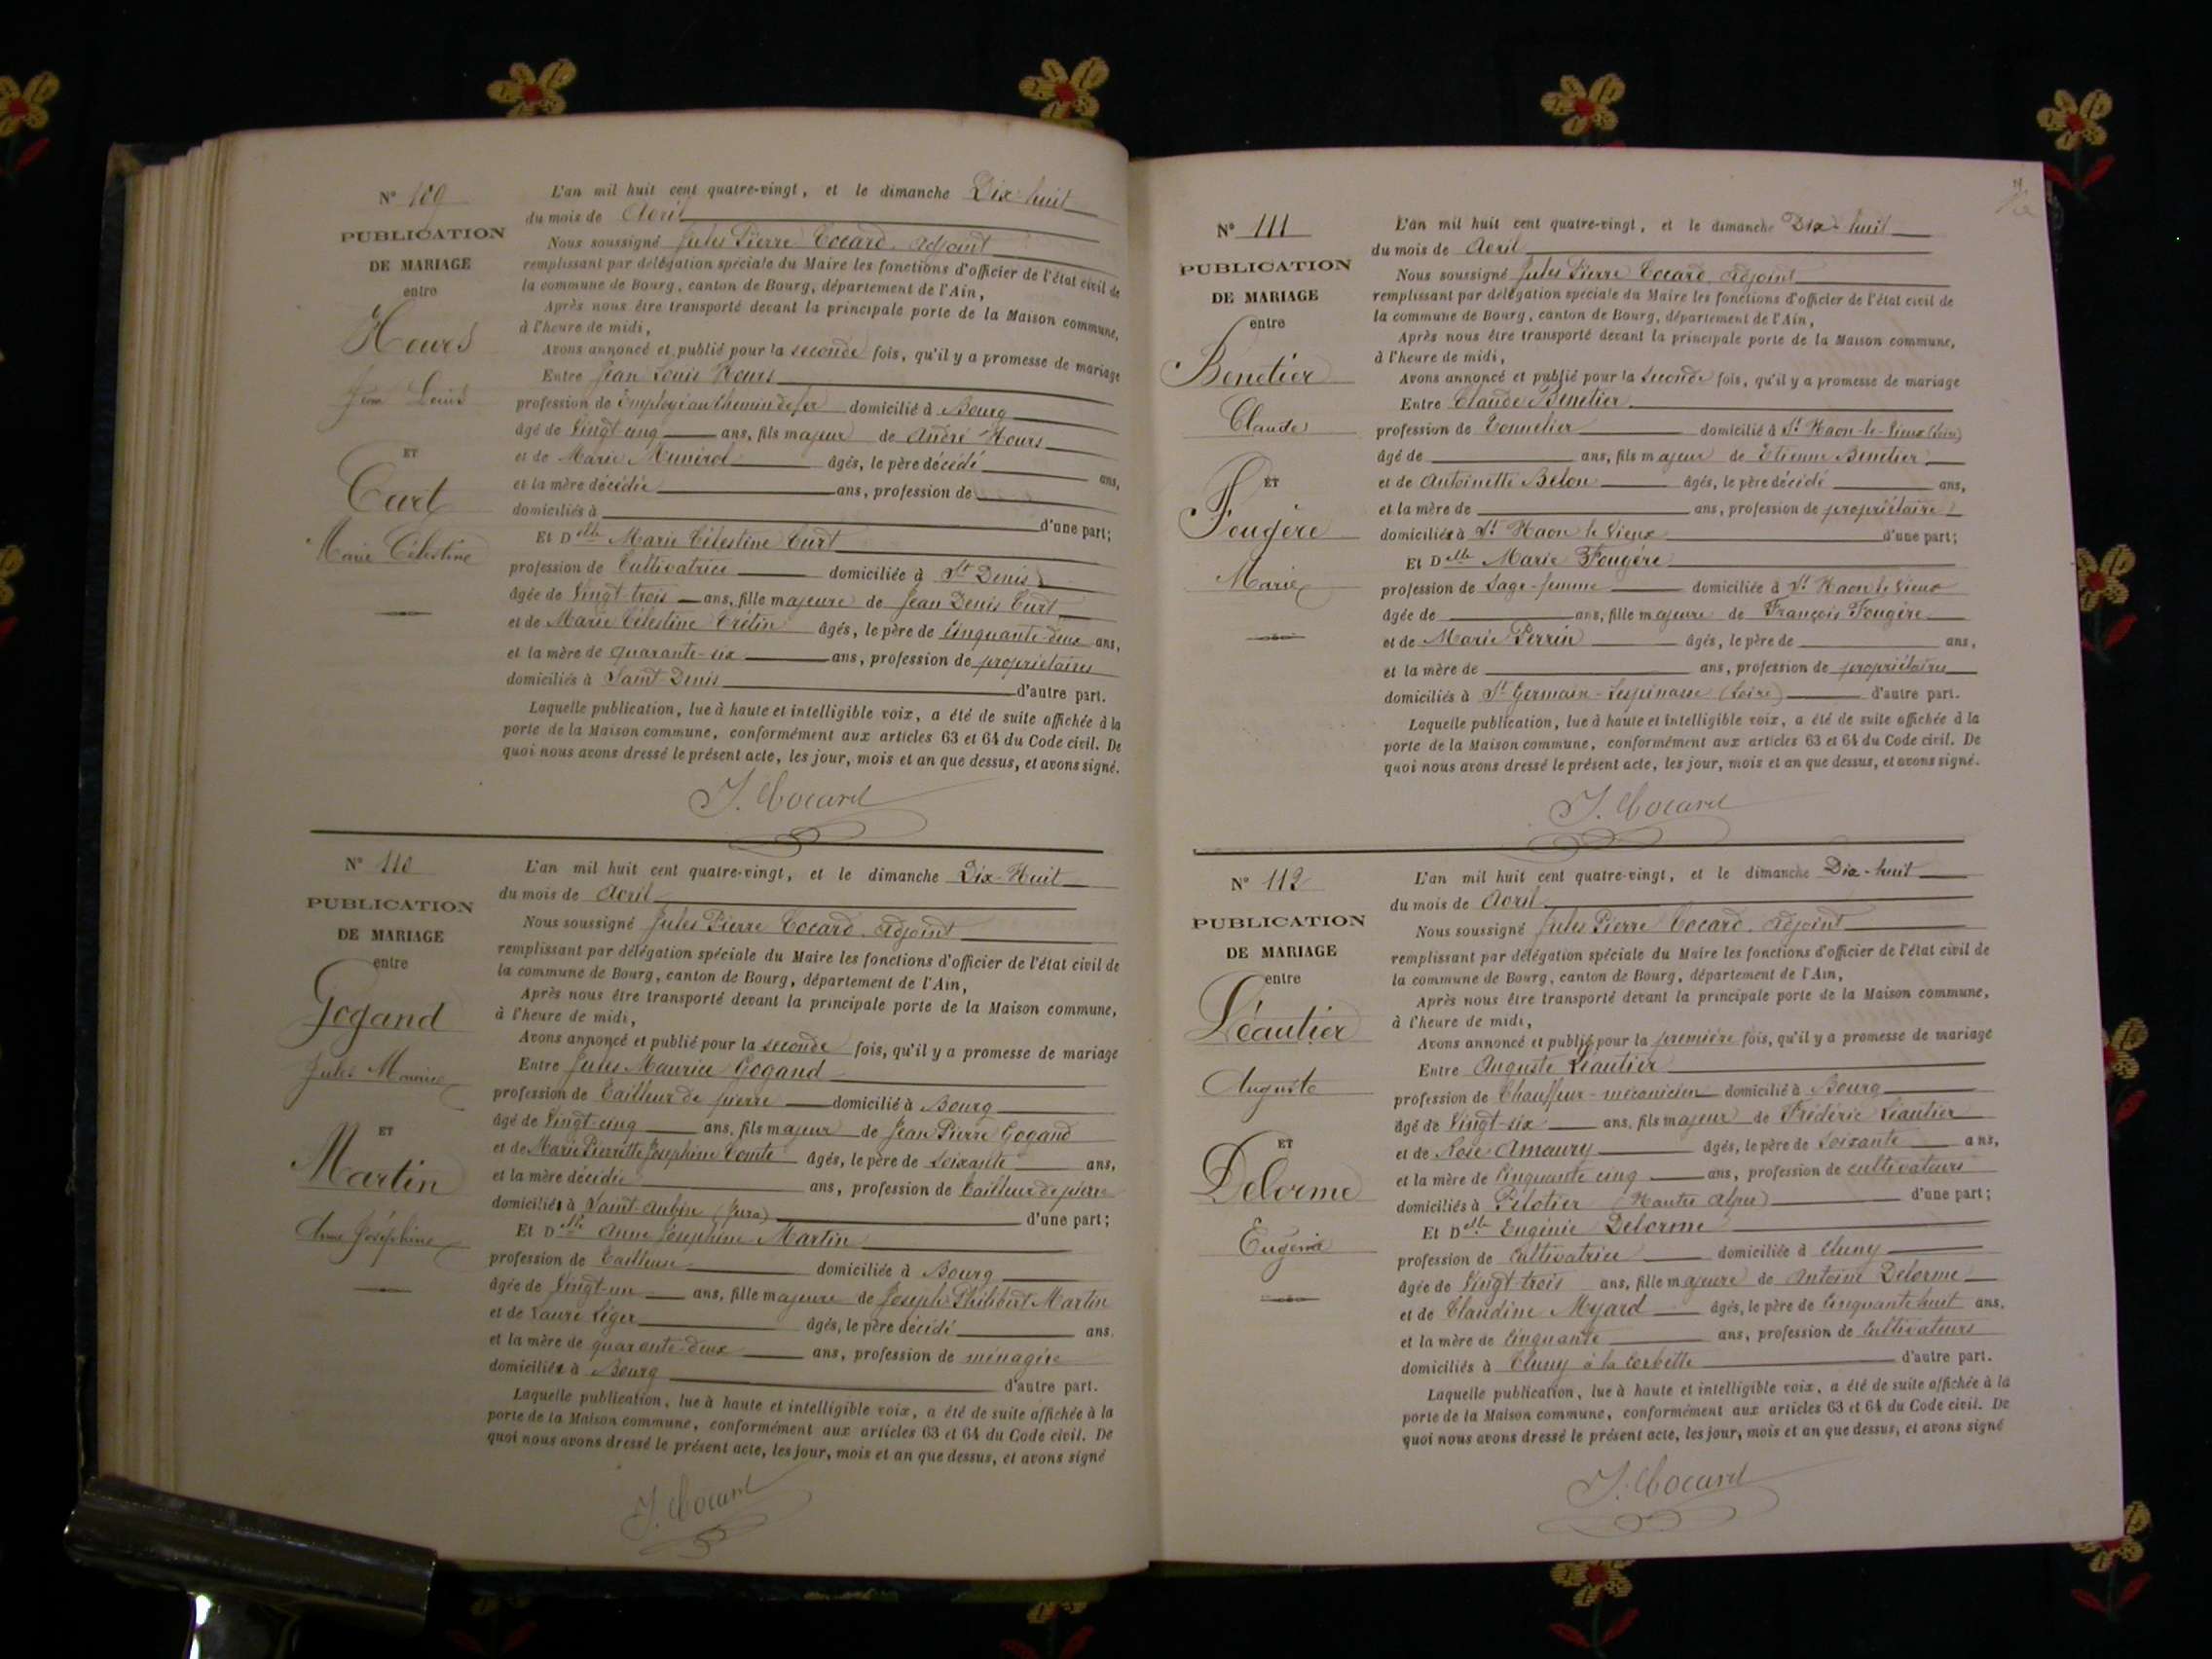 N° 109
PUBLICATION
DE MARIAGE
entre
Hours
Jean Louis
ET
Curt
Marie Célestine
L'an mil huit cent quatre-vingt, et le dimanche Dix-huit
du mois de Avril
Nous soussigné Jules Pierre Cocard, Adjoint
remplissant par délégation spéciale du Maire les fonctions d'officier de l'état civil de
la commune de Bourg, canton de Bourg, département de l'Ain,
Après nous être transporté devant la principale porte de la Maison commune,
à l'heure de midi,
Avons annoncé et publié pour la seconde fois, qu'il y a promesse de mariage
Entre Jean Louis Hours
profession de Employé au Chemin de fer domicilié à Bourg
âgé de Vingt-cinq ans, fils majeur de André Hours
et de Marie âgés, le père décédé ans,
et la mère décédée ans, profession de
domiciliés à d'une part;
Et Delle Marie Célestine Curt
profession de Cultivatrice domiciliée à St Denis
âgée de Vingt-trois ans, fille majeure de Jean Denis Curt
et de Marie Célestine Crétin âgés, le père de Cinquante-deux ans,
et la mère de quarante-six ans, profession de propriétaires
domiciliés à Saint Denis d'autre part.
Laquelle publication, lue à haute et intelligible voix, a été de suite affichée à la
porte de la Maison commune, conformément aux articles 63 et 64 du Code civil. De
quoi nous avons dressé le présent acte, les jour, mois et an que dessus, et avons signé.
J. Cocard
N° 110
PUBLICATION
DE MARIAGE
entre
Gogand
Jules Maurice
ET
Martin
Anne Joséphine
L'an mil huit cent quatre-vingt, et le dimanche Dix-Huit
du mois de Avril
Nous soussigné Jules Pierre Cocard, Adjoint
remplissant par délégation spéciale du Maire les fonctions d'officier de l'état civil de
la commune de Bourg, canton de Bourg, département de l'Ain,
Après nous être transporté devant la principale porte de la Maison commune,
à l'heure de midi,
Avons annoncé et publié pour la seconde fois, qu'il y a promesse de mariage
Entre Jules Maurice Gogand
profession de Tailleur de pierre domicilié à Bourg
âgé de Vingt-cinq ans, fils majeur de Jean Pierre Gogand
et de Marie Pierrette Joséphine Comte âgés, le père de Soixante ans,
et la mère décédée ans, profession de Tailleur de pierre
domiciliés à Saint-Aubin (Jura) d'une part;
Et Delle Anne Joséphine Martin
profession de Tailleuse domiciliée à Bourg
âgée de Vingt-un ans, fille majeure de Joseph Philibert Martin
et de Laure Léger âgés, le père décédé ans.
et la mère de quarante-deux ans, profession de ménagère
domiciliés à Bourg d'autre part.
Laquelle publication, lue à haute et intelligible voix, a été de suite affichée à la
porte de la Maison commune, conformément aux articles 63 et 64 du Code civil. De
quoi nous avons dressé le présent acte, les jour, mois et an que dessus, et avons signé
J. Cocard
N° 111
PUBLICATION
DE MARIAGE
entre
Benetier
Claude
ET
Fougère
Marie
L'an mil huit cent quatre-vingt, et le dimanche Dix-huit
du mois de Avril
Nous soussigné Jules Pierre Cocard, Adjoint
remplissant par délégation spéciale du Maire les fonctions d'officier de l'état civil de
la commune de Bourg, canton de Bourg, département de l'Ain,
Après nous être transporté devant la principale porte de la Maison commune,
à l'heure de midi,
Avons annoncé et publié pour la seconde fois, qu'il y a promesse de mariage
Entre Claude Benetier
profession de Tonnelier domicilié à St Haon-le-Vieux (Loire)
âgé de ans, fils majeur de Etienne Benetier
et de Antoinette Belon âgés, le père décédé ans,
et la mère de ans, profession de propriétaire
domiciliés à St Haon le Vieux d'une part;
Et Delle Marie Fougère
profession de Sage-femme domiciliée à St Haon le Vieux
âgée de ans, fille majeure de François Fougère
et de Marie Perrin âgés, le père de ans,
et la mère de ans, profession de propriétaires
domiciliés à St Germain-Lespinasse (Loire) d'autre part.
Laquelle publication, lue à haute et intelligible voix, a été de suite affichée à la
porte de la Maison commune, conformément aux articles 63 et 64 du Code civil. De
quoi nous avons dressé le présent acte, les jour, mois et an que dessus, et avons signé.
J. Cocard
N° 112
PUBLICATION
DE MARIAGE
entre
Léautier
Auguste
ET
Delorme
Eugénie
L'an mil huit cent quatre-vingt, et le dimanche Dix-huit
du mois de Avril
Nous soussigné Jules Pierre Cocard, Adjoint
remplissant par délégation spéciale du Maire les fonctions d'officier de l'état civil de
la commune de Bourg, canton de Bourg, département de l'Ain,
Après nous être transporté devant la principale porte de la Maison commune,
à l'heure de midi,
Avons annoncé et publié pour la première fois, qu'il y a promesse de mariage
Entre Auguste Léautier
profession de Chauffeur-mécanicien domicilié à Bourg
âgé de Vingt-six ans, fils majeur de Frédéric Léautier
et de Rose Amaury âgés, le père de Soixante ans,
et la mère de Cinquante cinq ans, profession de cultivateurs
domiciliés à (Hautes Alpes) d'une part;
Et Delle Eugénie Delorme
profession de Cultivatrice domiciliée à Cluny
âgée de Vingt-trois ans, fille majeure de Antoine Delorme
et de Claudine Myard âgés, le père de Cinquante huit ans,
et la mère de Cinquante ans, profession de Cultivateurs
domiciliés à Cluny à la Corbette d'autre part.
Laquelle publication, lue à haute et intelligible voix, a été de suite affichée à la
porte de la Maison commune, conformément aux articles 63 et 64 du Code civil. De
quoi nous avons dressé le présent acte, les jour, mois et an que dessus, et avons signé
J. Cocard